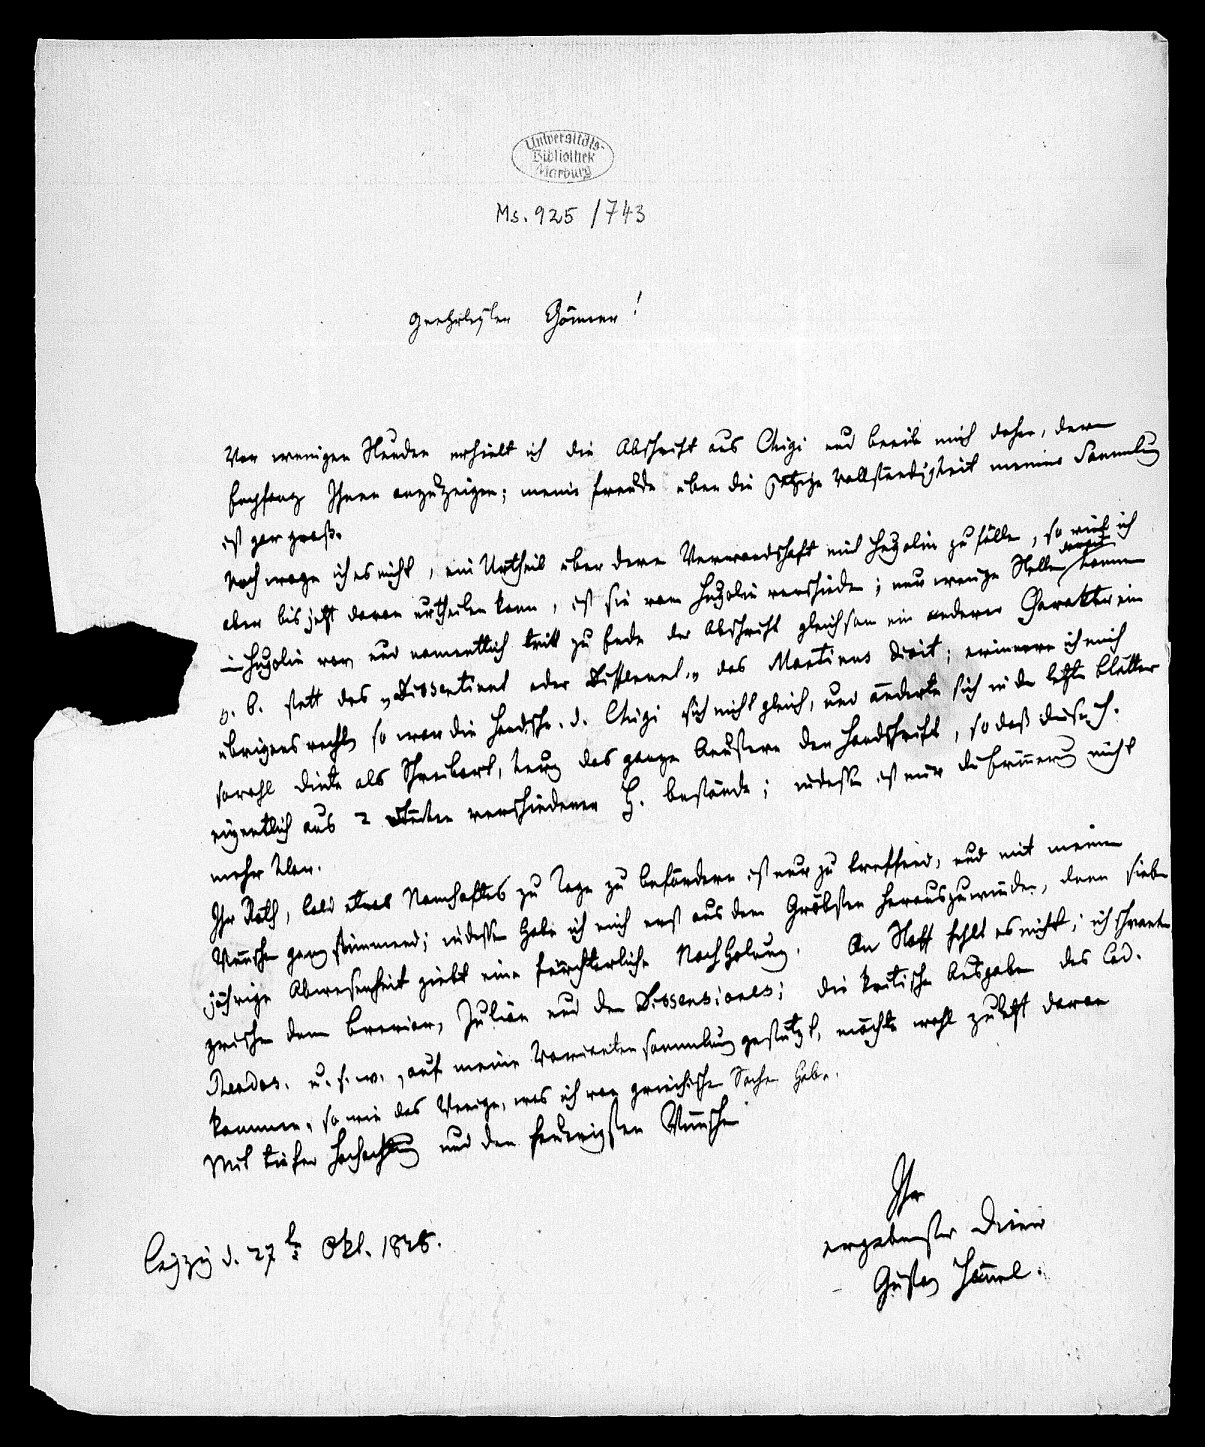 Universitäts-
Bibliothek
Marburg
Ms. 925 /743
Geehrtester Gönner!
Vor wenigen Stunden erhielt ich die Abschrift aus Chigi und beeile mich daher, deren
Empfang Ihnen anzuzeigen; meine Freude über die jetzige Vollständigkeit meiner Sammlung
ist gar groß.
Noch wage ich es nicht, ein Urtheil über deren Verwandschaft mit Hugolin zu fällen, so viel ich
aber bis jetzt davon urtheilen kann, ist sie von Hugolin verschieden; nur wenige Stellen daraus kommen
in Hugolin vor, und namentlich tritt zu Ende der Abschrift gleichsam ein anderer Charakter ein
z. B. statt des „Dissentiunt oder das Martinus dicit; erinnere ich mich
übrigens recht, so war die Handschr. d. Chigi sich nicht gleich, und änderte sich in den letzten Blättern
sowohl Dinte als Schreibart, kurz das ganze Aeußere der Handschrift, so daß dieselbe
eigentlich aus 2 Stücken verschiedener H. bestände; indessen ist mir die Erinnerung nicht
mehr klar.
Ihr Rath, bald etwas Namhaftes zu Tage zu befördern ist nur zu treffend, und mit meinen
Wünschen ganz stimmend; indessen habe ich mich erst aus dem Gröbsten herauszuwinden, denn sieben
jährige Abwesenheit giebt eine fürchterliche Nachholung. An Stoff fehlt es nicht; ich schwanke
zwischen dem Brevier, Julian und den Dissensiones; die kritische Ausgabe des Cod.
Theodos. u. s. w., auf meine Variantensammlung gestützt, möchte wohl zuletzt daran
kommen, so wie das Wenige, was ich von griechischen Sachen habe.
Mit tiefer Hochachtung und den feurigsten Wünschen
Ihr
ergebenster Diener
Gustav Hänel.
Leipzig d. 27 Okt. 1828.